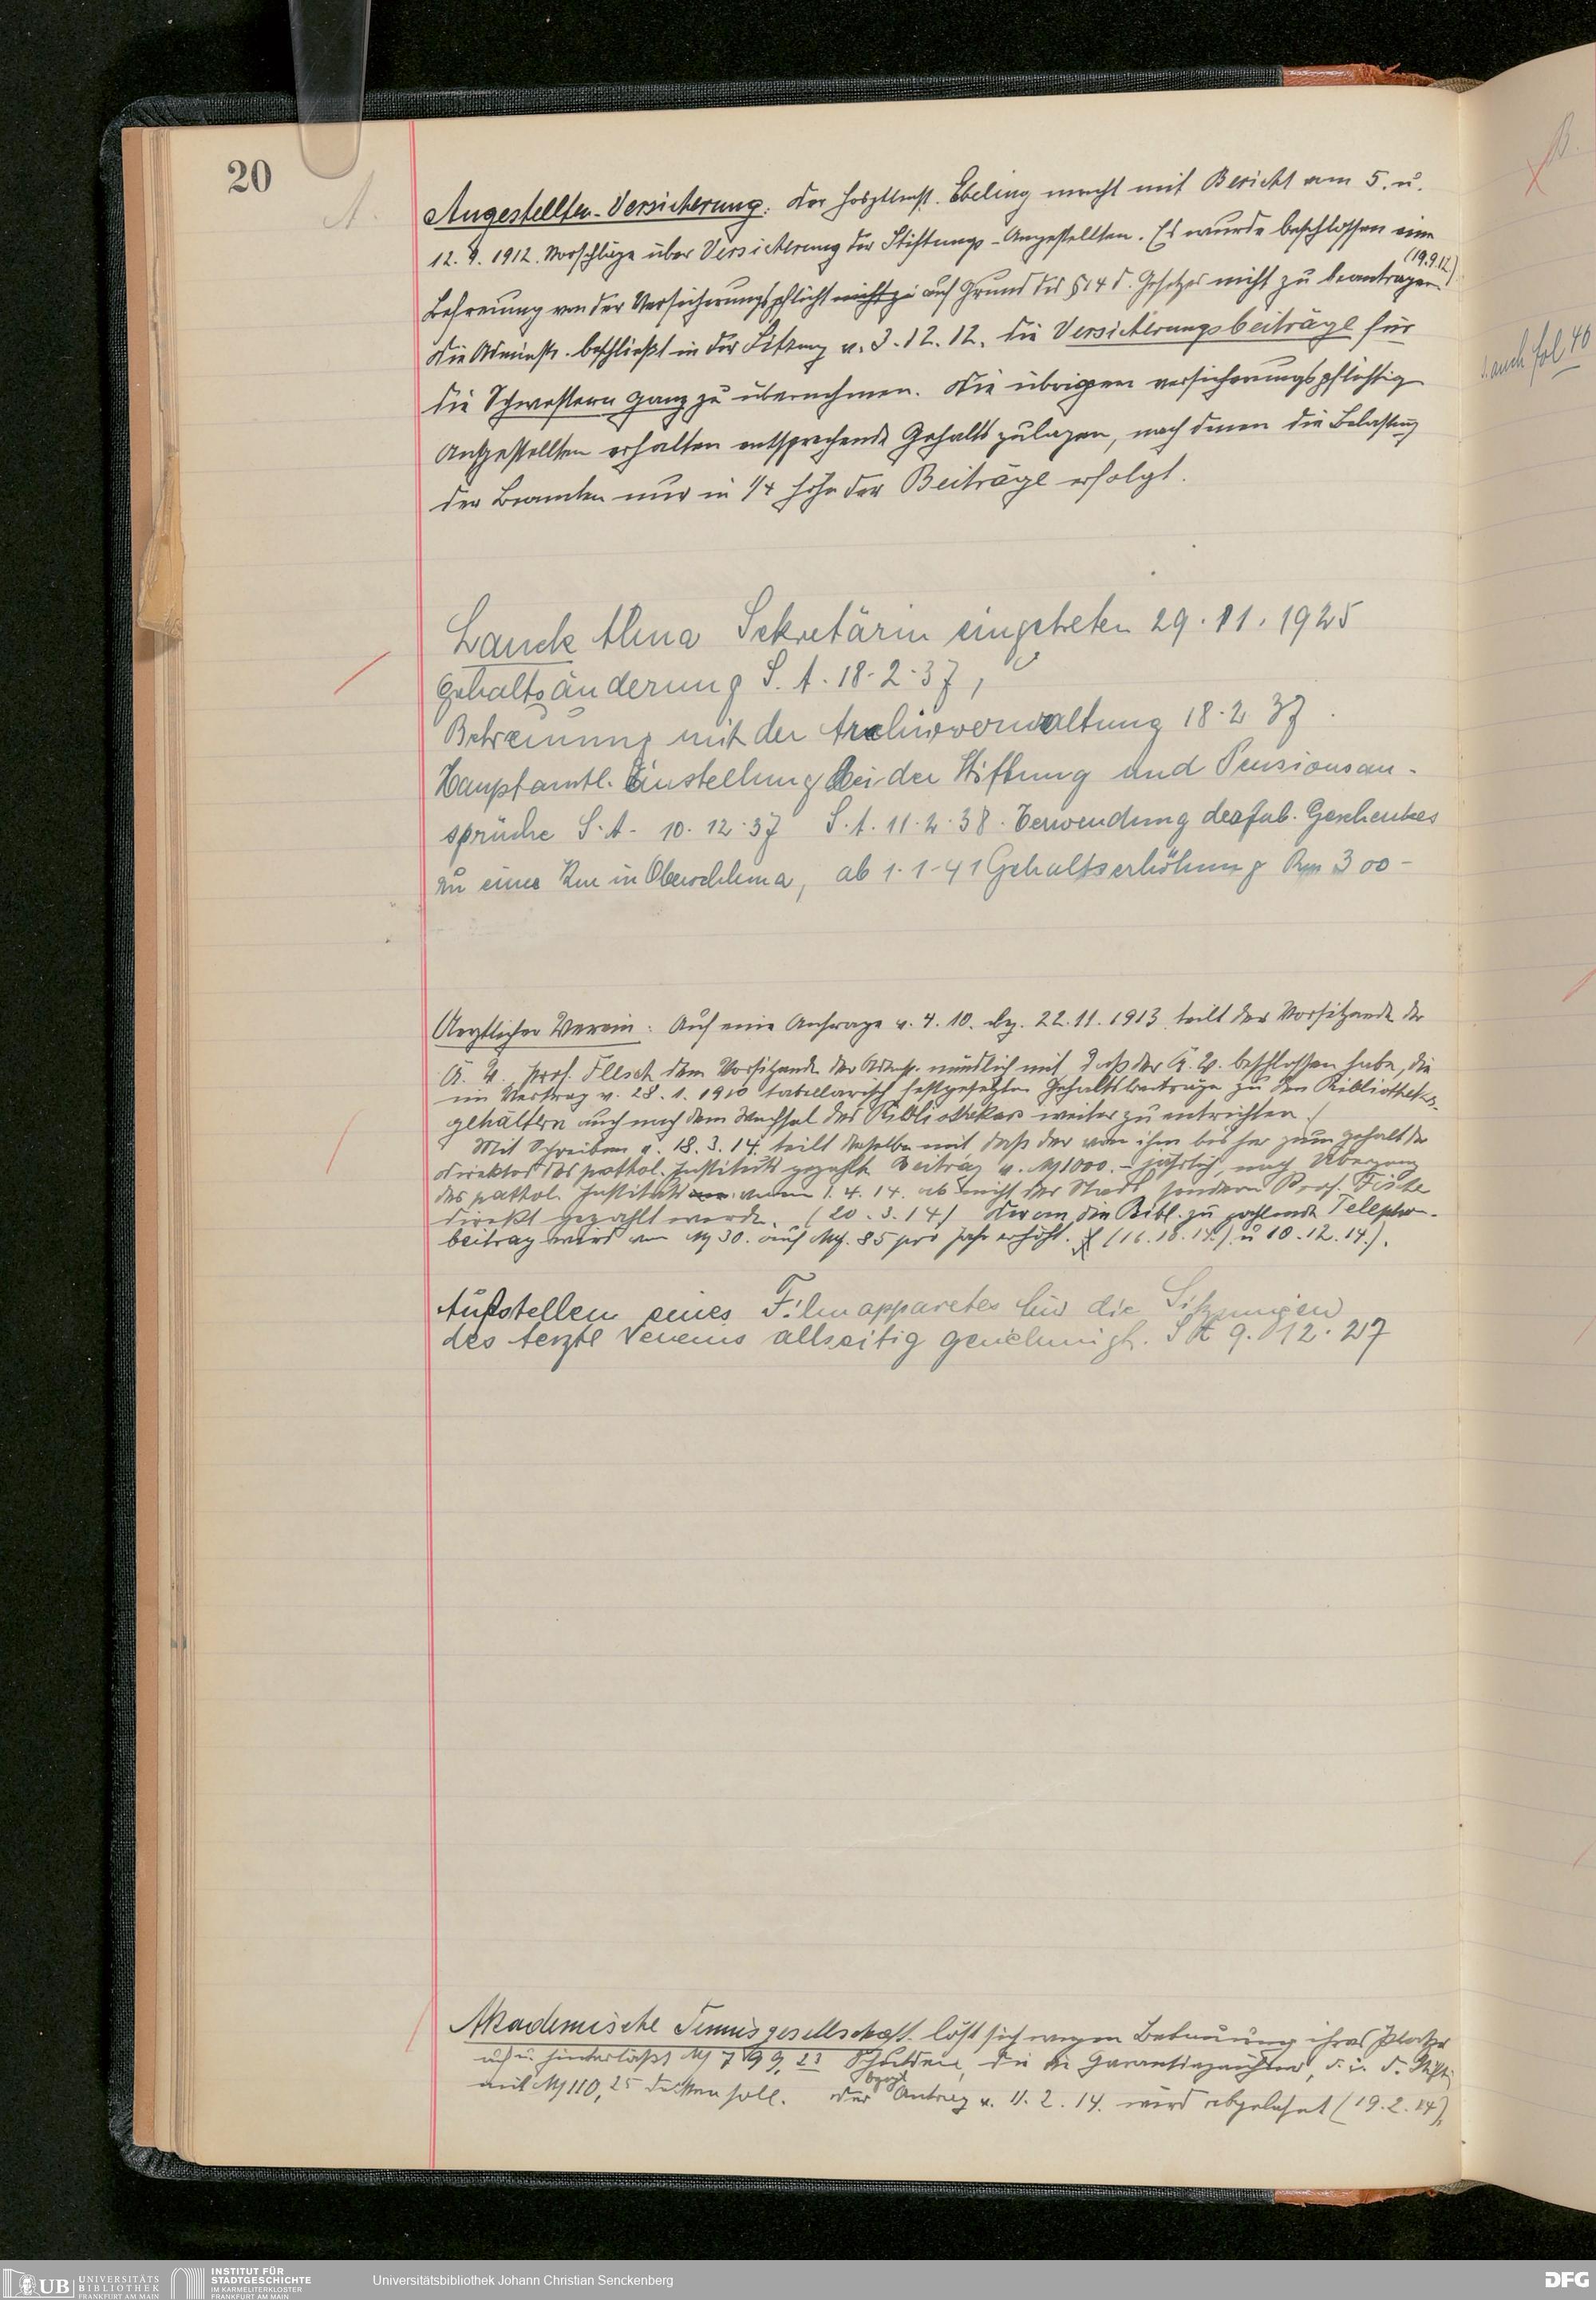 20
A.
Angestellten-Versicherung. Der Hosp. Ebeling macht mit Bericht vom 5. u.
12. 9. 1912. Vorschläge über Versicherung der Stiftungs-Angestellten. Es wurde beschlossen eine
(19.9.12)
Befreiung von der Versicherungspflicht nicht zu auf Grund des § 14 d. Gesetzes nicht zu beantragen.
Die Administr. beschließt in der Sitzung v. 3. 12. 12. die Versicherungsbeiträge für
die Schwestern ganz zu übernehmen. Die übrigen versicherungspflichtig
Angestellten erhalten entsprechende Gehaltszulagen, nach denen die Belastung
der Beamten nur in 1/4 Höhe der Beiträge erfolgt.
s. auch fol 40
Alma Sekretärin eingetreten 29. 11. 1925
Gehaltsänderung S. A. 18. 2. 37,
Betreuung mit der Archivverwaltung 18. 2 37.
Hauptamtl. Einstellung bei der Stiftung und Pensionsan-
sprüche S. A. 10. 12. 37 S. A. 11. 2. 38. Verwendung des Jub. Geschenkes
zu einer Kur in Oberschlema, ab 1. 1-41 Gehaltserhöhung Rm 300-
Aerztlicher Verein: Auf eine Anfrage v. 4. 10. bz. 22. 11. 1913 teilt der Vorsitzende der
Ä. V. Prof. Flesch dem Vorsitzende der Adm. mündlich mit, daß der Ä. V. beschlossen habe, die
im Vertrag v. 28. 1. 1910 tabellarisch festgesetzten Gehaltsbeiträge zu den Bibliotheks-
gehältern auch nach dem Wechsel des Bibliothekars weiter zu entrichten.
Mit Schreiben v. 18. 3. 14. teilt derselbe mit daß der von ihm bisher zum Gehalt der
Direktor des pathol. Instituts gezahlte Beitrag v. M 1000.- jährlich, nach Übergang
des pathol. Instituts vom 1. 4. 14. ab nicht der Stadt sondern Prof. Fischer
direkt gezahlt werde. (20. 3. 14) Der an die Bibl. zu zahlende Telephon-
beitrag wird von M 30. auf M. 85 pro Jahr erhöht. (16. 10. 14.) u 10. 12. 14.).
Aufstellen eines Filmapparates für die Sitzungen
des Aerztl Vereins allseitig genehmigt. S A 9. 12. 27
Akademische Tennisgesellschaft. löst sich wegen Bebauung ihres Platzes
auf u. hinterläßt M 799, 23 Schulden, die die Garantiezeichner, d. i. d. Stift.
mit M 110, 25 decken soll. Der bezgl Antrag v. 11. 2. 14. wird abgelehnt (19. 2. 14)
UB UNIVERSITÄTS BIBLIOTHEK FRANKFURT AM MAIN
INSTITUT FÜR STADTGESCHICHTE IM KARMELITERKLOSTER FRANKFURT AM MAIN
Universitätsbibliothek Johann Christian Senckenberg
DFG